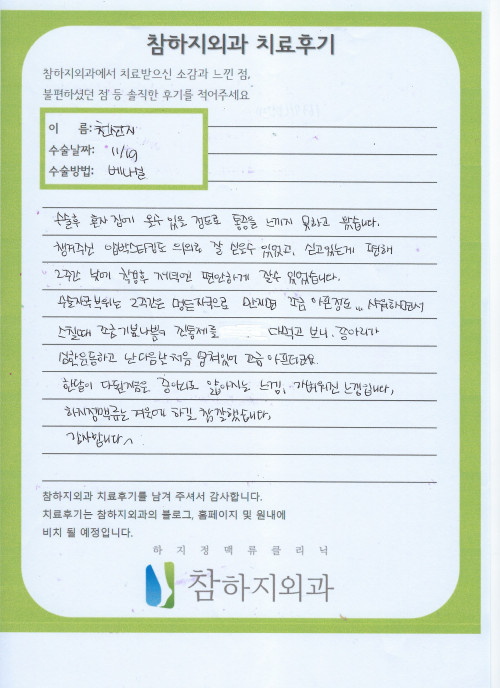 참하지외과 치료후기
참하지외과에서 치료받으신 소감과 느낀 점,
불편하셨던 점 등 솔직한 후기를 적어주세요
이 름:
수술날짜: 11/19
수술방법: 베나실
수술후 혼자 집에 올수 있을 정도로 통증을 느끼지 못하고 왔습니다.
챙겨주신 압박스타킹도 의외로 잘 신을수 있었고, 신고있는게 편해
2주간 낮에 착용후 저녁엔 편안하게 잘수 있었습니다.
수술자국부위는 2주간은 멍든자국으로 만지면 조금 아픈정도... 샤워하면서
스칠때 조금 기분나쁨 진통제를 대먹고 보니, 종아리가
심한운동하고 난 다음날처음 뭉쳐있어 조금 아프더라고요.
한달이 다된지금은 종아리도 얇아지는 느낌, 가벼워진 느낌입니다,
하지정맥류는 겨울에 하길 참 잘했습니다,
감사합니다^
참하지외과 치료후기를 남겨 주셔서 감사합니다.
치료후기는 참하지외과의 블로그, 홈페이지 및 원내에
비치 될 예정입니다.
하지정맥류클리닉
참하지외과